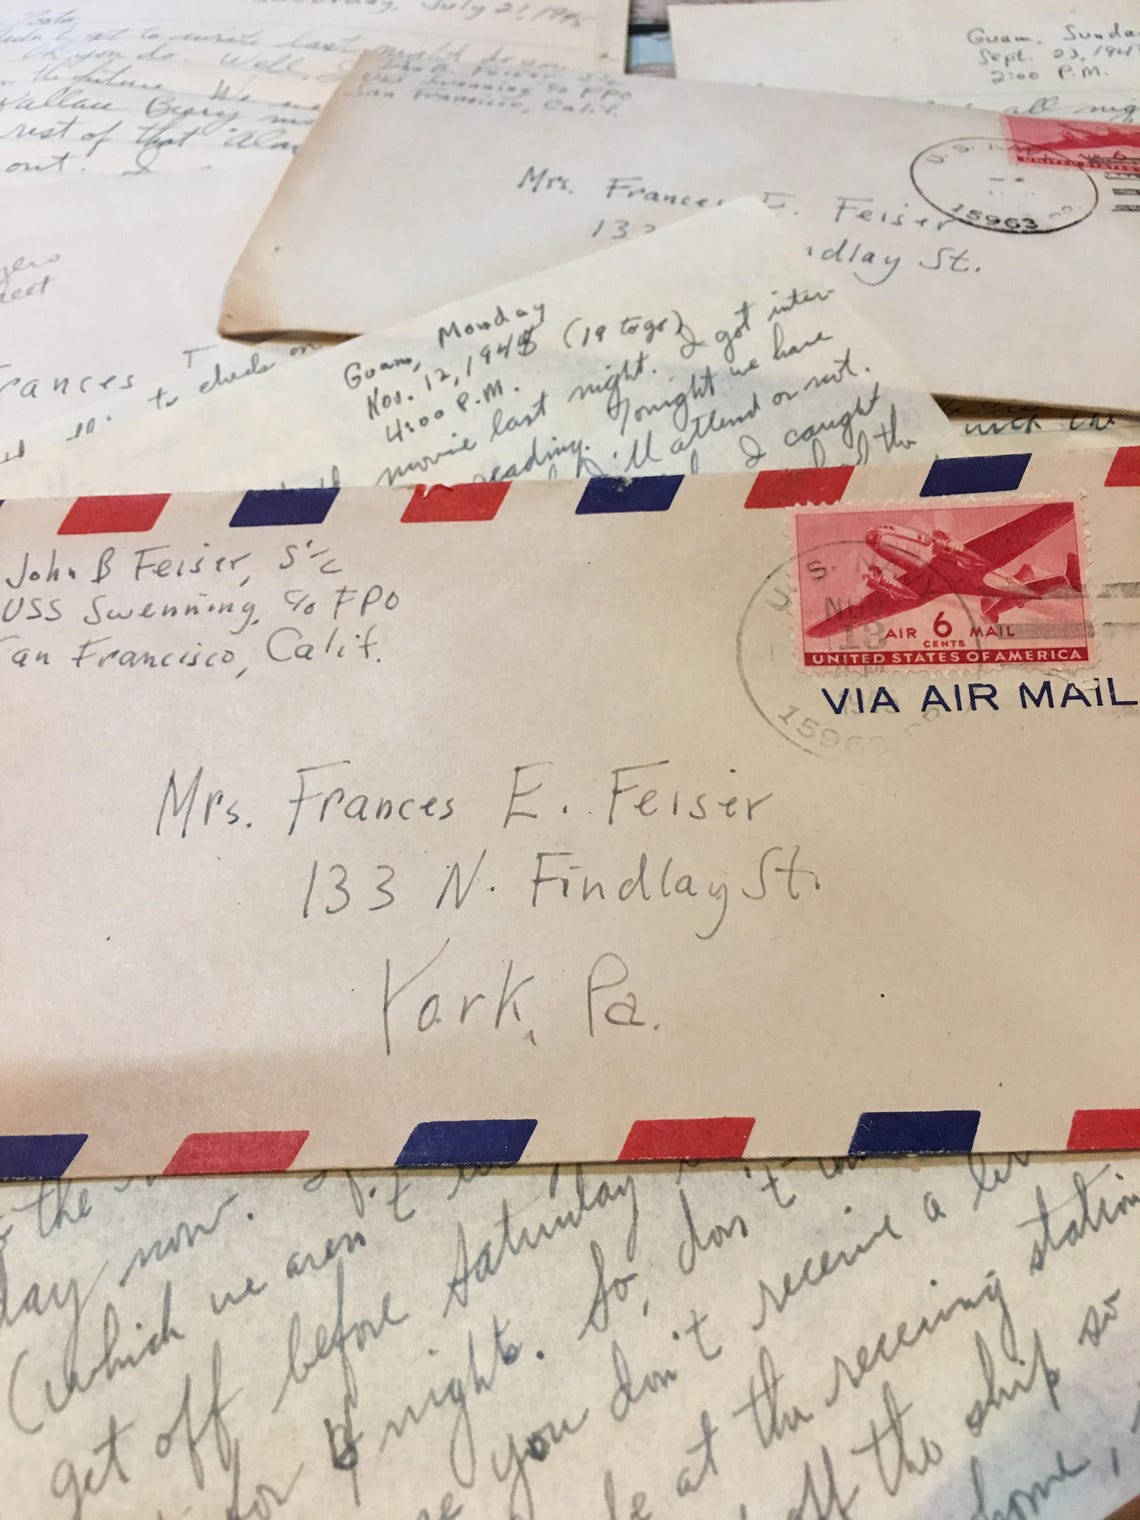 Saturday, July 21, 1945
to write last night
you do. Well,
the future. We
Wallace Beery
rest of that
out. I
Guam, Sunday
Sept. 23, 194
2:00 P.M.
all nig
John B. Feiser
USS Swenning c/o FPO
San Francisco, Calif.
UNITED STATES
U.S. NA
15963
Mrs. Frances E. Feiser
133
ndlay St.
eet
rances
to check on
Guam, Monday
Nov. 12, 1945 (19 to go)
4:00 P.M.
movie last night. I got inter-
reading. Tonight we have
I'll attend or not.
I caught
the
John B Feiser, S1/c
USS Swenning, c/o FPO
San Francisco, Calif.
U.S. NAVY
NOV
13
15963
AIR 6 MAIL
CENTS
UNITED STATES OF AMERICA
VIA AIR MAIL
Mrs. Frances E. Feiser
133 N. Findlay St.
York, Pa.
the
day now.
(which we aren't
get off before Saturday
for 4 nights. So, don't
you don't receive a
at the receiving station
off the ship so
home,